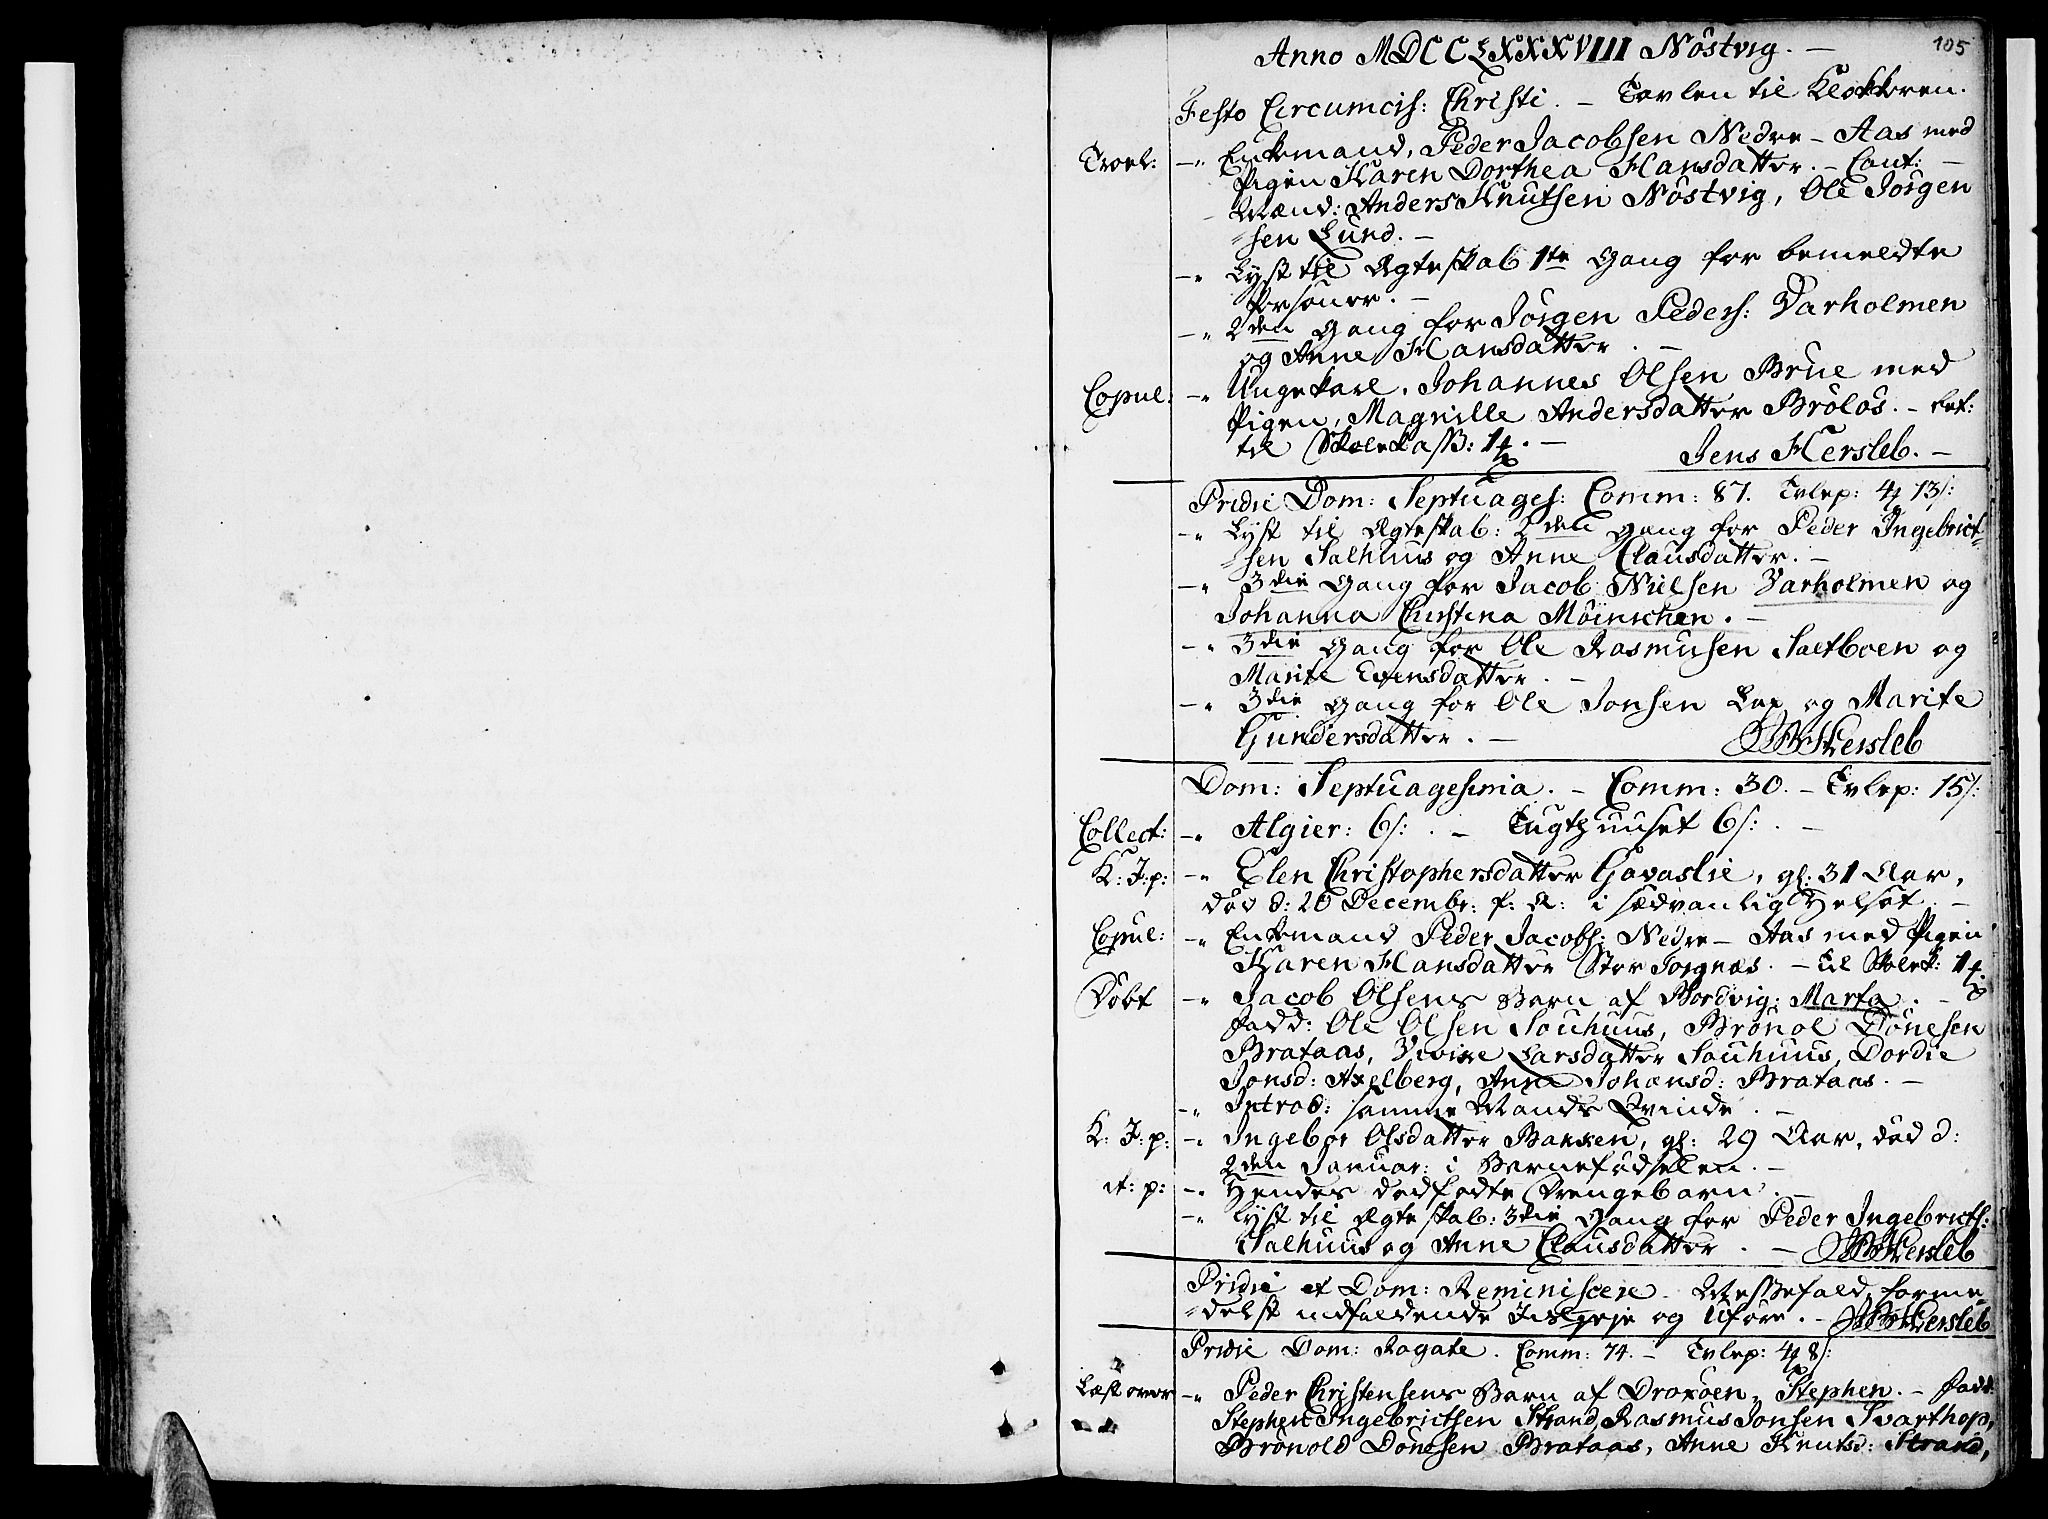 105
Anno MDCCLXXXVIII Nöstvig. –
Festo Circumcis: Christi. – Tavlen til Klokkeren.
Troel: –" Enkemand, Peder Jacobsen Nedre-Aas med
Pigen Karen Dorthea Hansdatter. – Caut: –
Mænd: Anders Knutsen Nöstvig, Ole Jörgen
=sen Lund. –
–" Lyst til Ægteskab 1te Gang for bemeldte
Personer. –
–" 2den Gang for Jörgen Peders: Varholmen
og Anne Hansdatter. –
Copul: –" Ungekarl, Johannes Olsen Brue med
Pigen, Magnille Andersdatter Brölös. –
til Skolekass: 1
Jens Hersleb. –
Pridie Dom: Septuages: Comm: 87. Tvlep: 4 13/:
–" Lyst til Ægteskab: 2den Gang for Peder Ingebrict=
=sen Salhuus og Anne Clausdatter. –
–" 3die Gang for Jacob Nielsen Varholmen og
Johanna Christina Möinichen. –
–" 3die Gang for Ole Rasmusen Saltboen og
Marite Evensdatter. –
–" 3die Gang for Ole Jonsen Lap og Marite
Gundersdatter. –
Hersleb
Dom: Septuagesima. – Comm: 30. – Tvlep: 15/:
Collect: –" Algier: 6/: . – Tugthuuset 6/: . –
K: J: p: –" Elen Christophersdatter Gavaslie, gl: 31 Aar,
död d: 20 Decembr: f: A: i sædvanlig Helsot. –
Copul: –" Enkemand Peder Jacobs: Nedre-Aas med Pigen
Karen Hansdatter Stor Jorgnæs. – til Skolek: 1
Döbt –" Jacob Olsens Barn af Nordvig: Marta. –
Fadd: Ole Olsen Souhuus, Brönol Dönesen
Brataas, Larsdatter Souhuus, Dordie
Jonsd: Axelberg, Anne Johansd: Brataas. –
–" Introd: samme Mands Qvinde. –
K: J: p: –" Ingebor Olsdatter Bakken, gl: 29 Aar, död d:
2den Januar: i Barnefödselen. –
it: p: –" Hendes dödfödte Drengebarn. –
–" Lyst til Ægteskab: 3die Gang for Peder Ingebricts:
Salhuus og Anne Clausdatter. – Hersleb
Pridie et Dom: Reminiscere. Messefald, forme=
=delst indfaldende og Uföre. – Hersleb
Pridie Dom: Rogate. Comm: 74. – Tvlep: 4 8/:
Læst over –" Peder Christensens Barn af Droxöen, Stephen. – Fadd:
Stephen Ingebrictsen Strand, Rasmus Jonsen Svarthop,
Brönold Dönesen Brataas, Anne Knutsd: Strand,